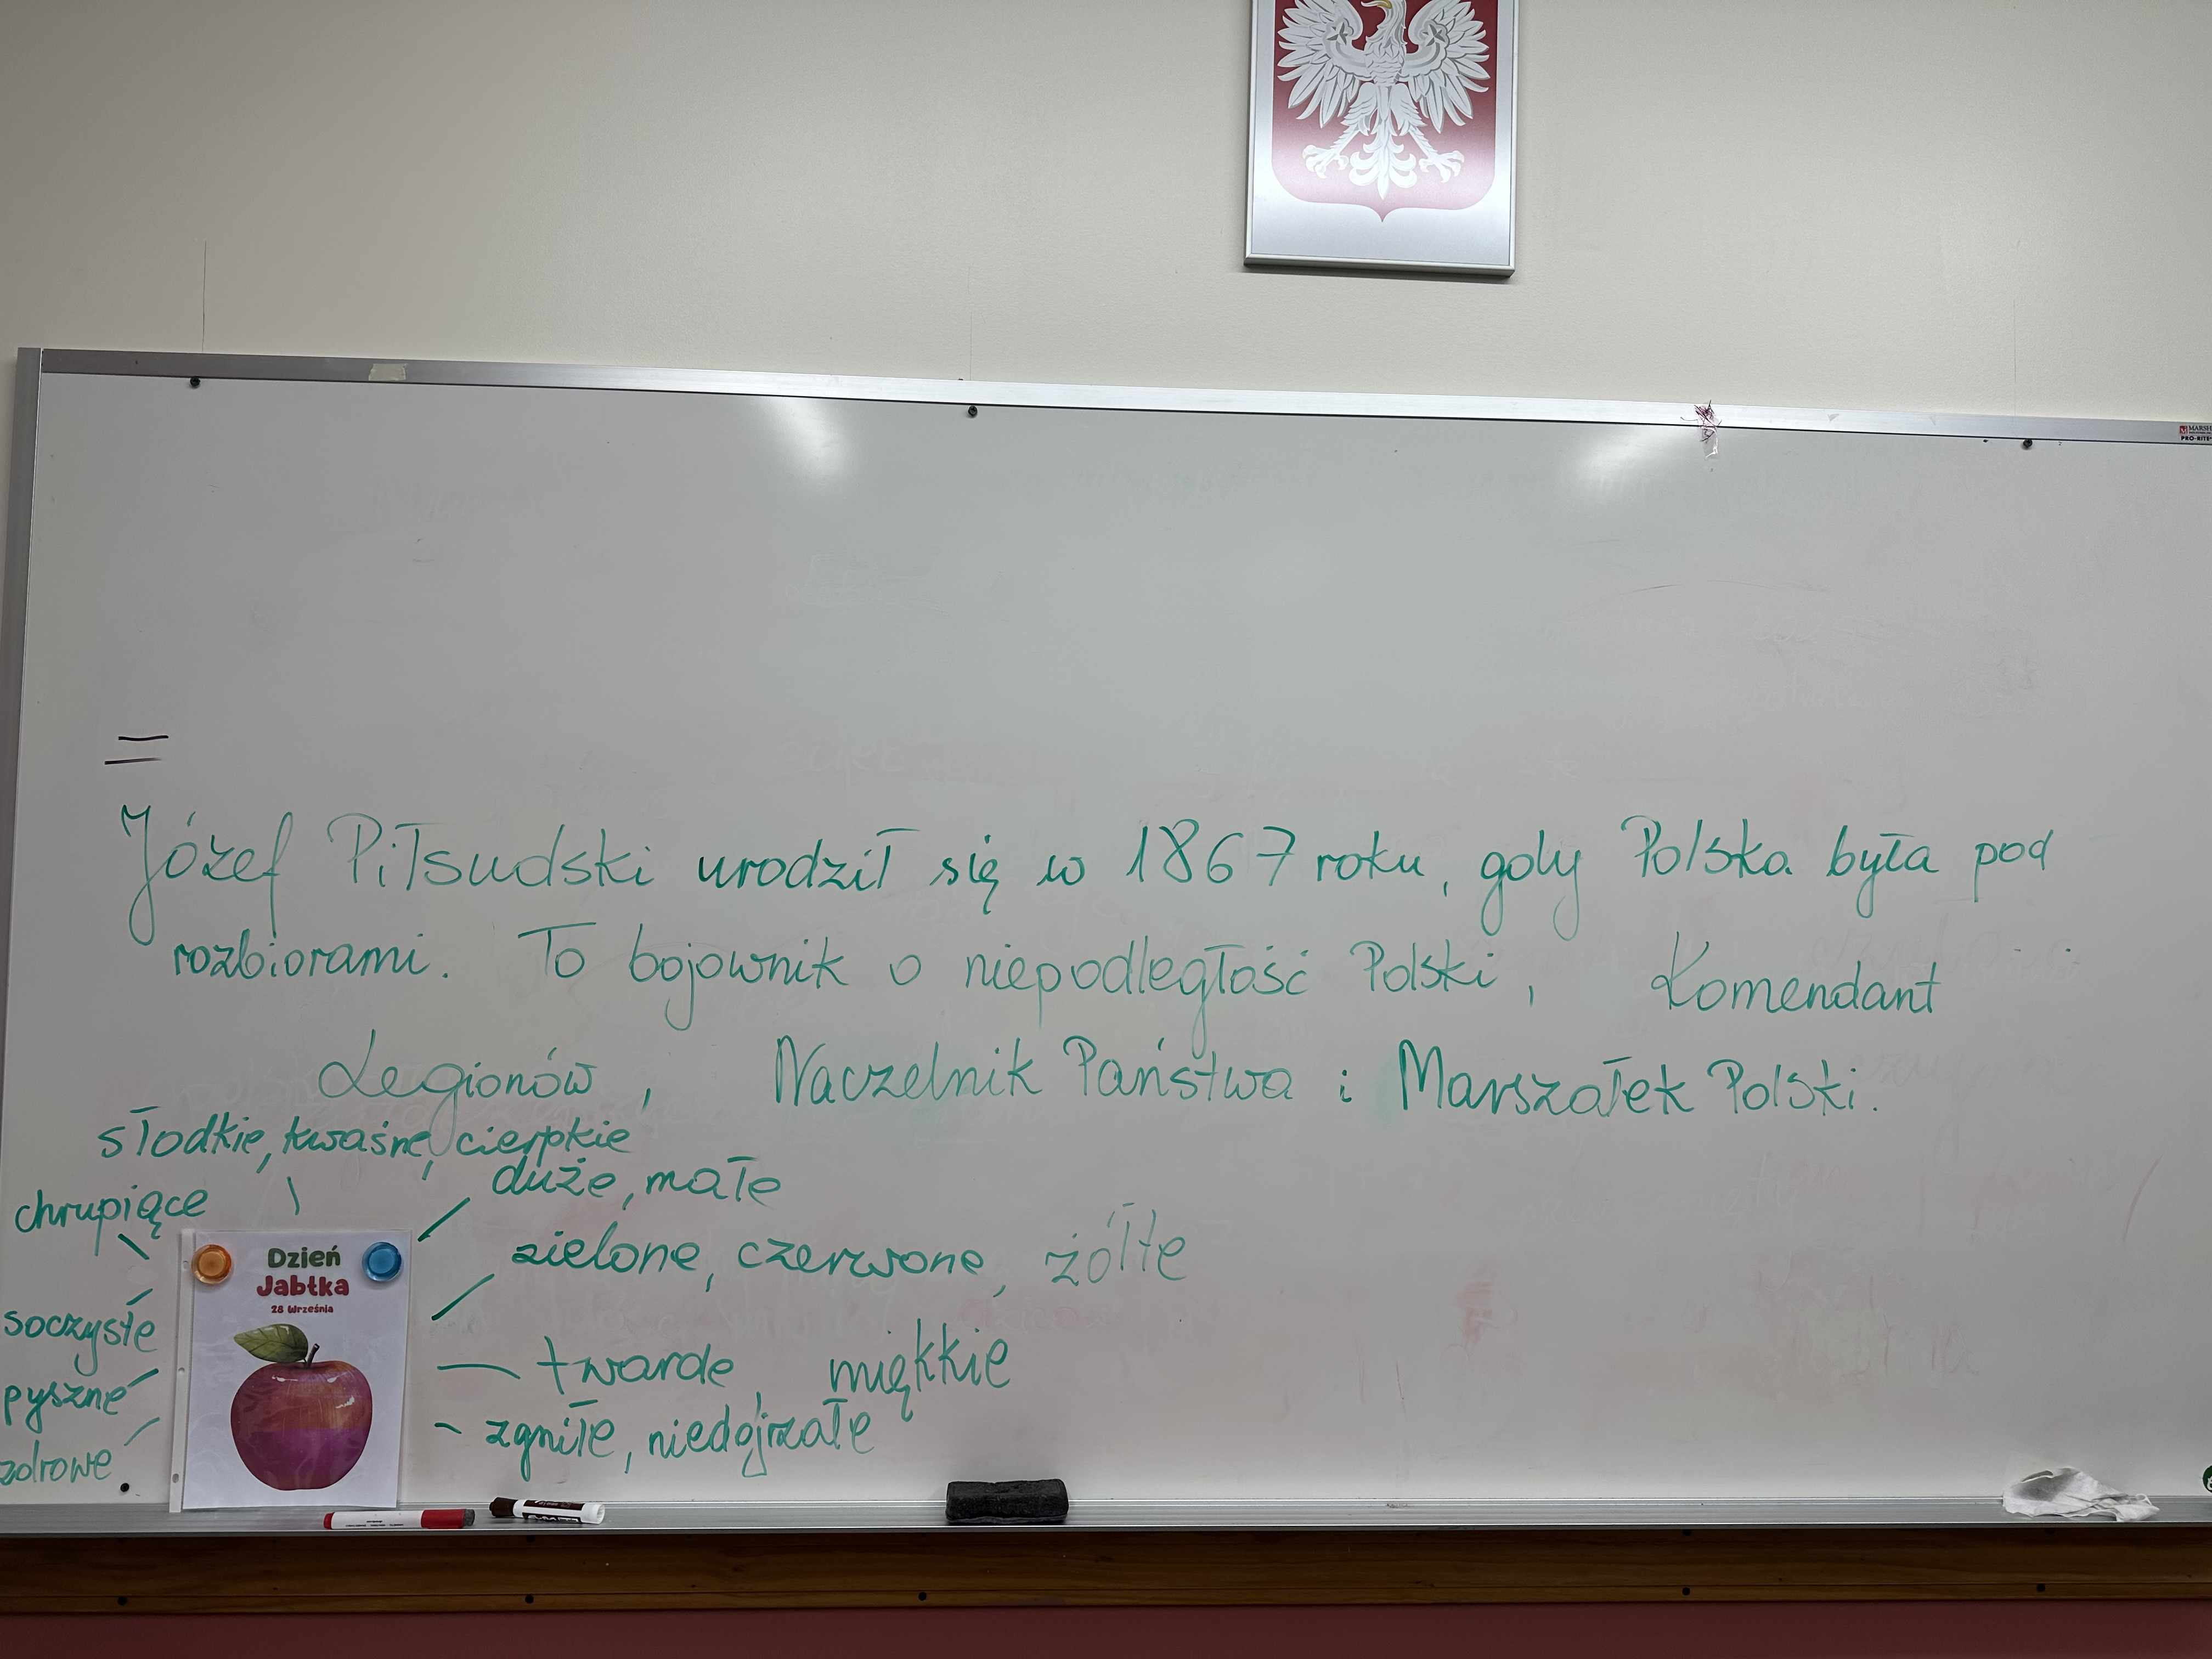 Józef Piłsudski urodził się w 1867 roku, gdy Polska była pod
rozbiorami. To bojownik o niepodległość Polski, Komendant
Legionów, Naczelnik Państwa i Marszałek Polski.
słodkie, kwaśne, cierpkie
duże, małe
chrupiące
zielone, czerwone, żółte
Dzień
Jabłka
28 Września
soczyste
twarde, miękkie
pyszne
zgniłe, niedojrzałe
zdrowe
MARSH
PRO-RITE